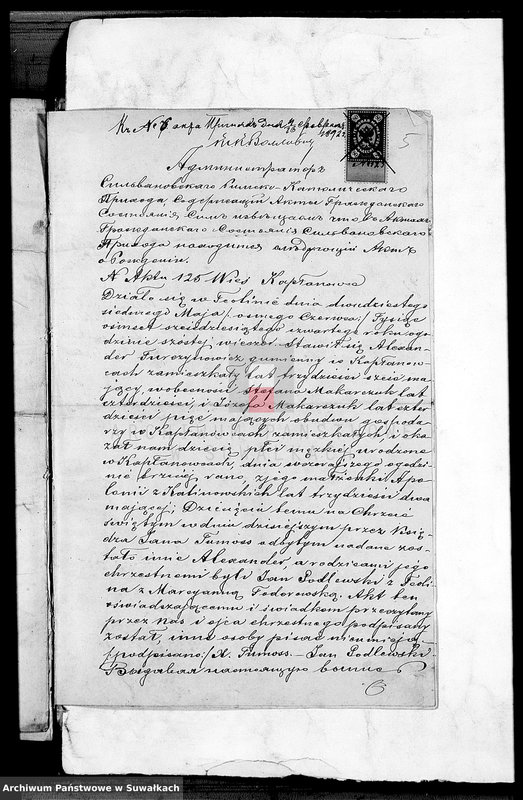 Къ № 6 акта
5
Администраторъ
Сильвановскаго Римско-Католическаго
Прихода, Содержащій Акты Гражданскаго
Состоянія Симъ что въ Актахъ
Гражданскаго Состоянія Сильвановскаго
Прихода находится слѣдующій Актъ
о Рожденіи.
N Aktu 126 Wieś Kapłanowce
Działo się w Teolinie dnia dwudziestego
siódmego Maja /:ósmego Czerwca:/ Tysiąc
ośmset sześćdziesiątego czwartego roku, o go-
dzinie szóstej wieczor. Stawił się Alexan-
der gumienny w Kapłanow-
cach zamieszkały lat trzydzieści sześć ma-
jący, w obecności Stefana Makarczuk lat
czterdzieści, i Józefa Makarczuk lat czter
dzieści pięć mających obudwu gospoda-
rzy w Kapłanowcach zamieszkałych, i oka-
zał nam dziecię płci męzkiej urodzone
w Kapłanowcach, dnia wczorajszego o godzi-
nie trzeciej rano z jego małżonki Apo-
lonii z Kalinowskich lat trzydzieści dwa
mającej; Dziecięciu temu na Chrzcie
świętym w dniu dzisiejszym przez Xię-
dza Jana Tumoss odbytym nadane zos-
tało imie Alexander, a rodzicami jego
chrzestnemi byli Jan Podlewski z Teoli-
na z Maryanną Fedorowską. Akt ten
oświadczającemu i świadkom przeczytany
przez nas i ojca chrzestnego podpisany
został, inne osoby pisać nieumieją.
/podpisano:/ X. Tumoss. – Jan Podlewski.
настоящую
Archiwum Państwowe w Suwałkach